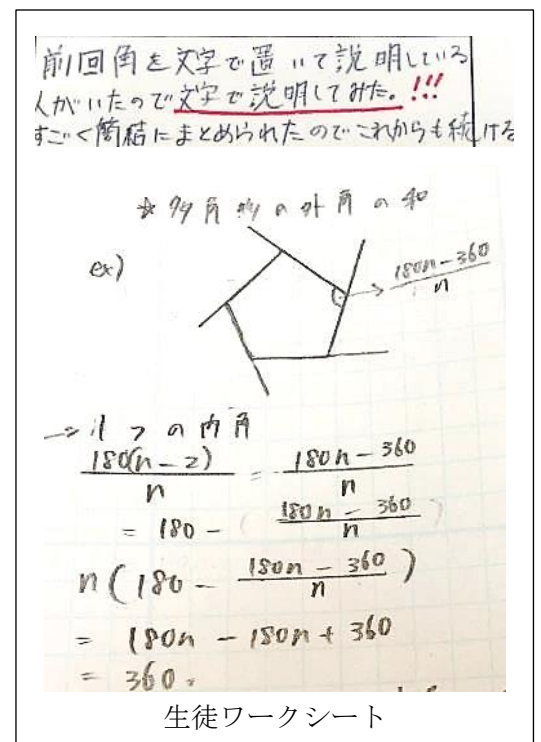 前回角を文字で置いて説明している
人がいたので文字で説明してみた。!!!
すごく簡結にまとめられたのでこれからも続ける
☆ 多角形の外角の和
ex)
180n-360/n
→ 1つの内角
180(n-2)/n = 180n-360/n
= 180 - (180n-360/n)
n(180 - 180n-360/n)
= 180n - 180n + 360
= 360.
生徒ワークシート